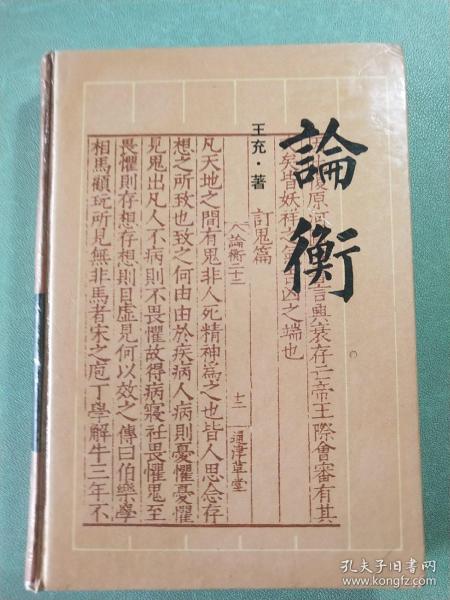 論衡
王充·著
復原河言興衰存亡帝王際會審有其
矣皆妖祥之凶之端也
訂鬼篇
論衡二十二 十二 通津草堂
凡天地之間有鬼非人死精神為之也皆人思念存
想之所致也致之何由由於疾病人病則憂懼憂懼
見鬼出凡人不病則不畏懼故得病寢衽畏懼鬼至
畏懼則存想存想則目虛見何以效之傳曰伯樂學
相馬顧玩所見無非馬者宋之庖丁學解牛三年不
孔夫子旧书网
www.kongfz.com